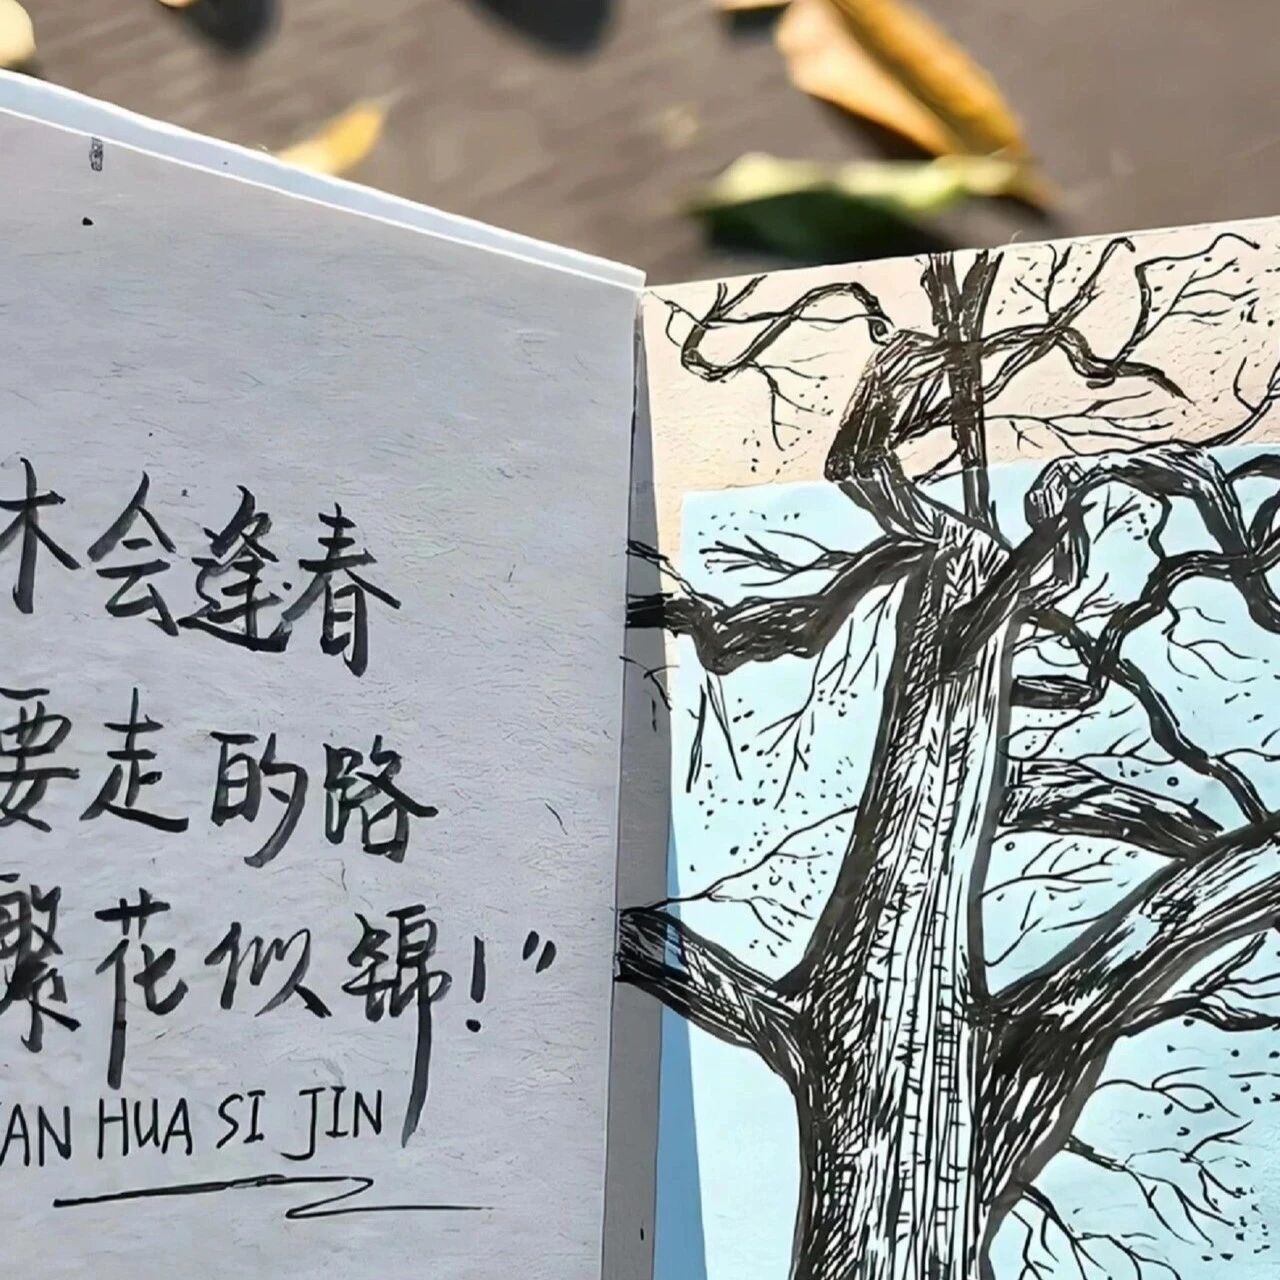 木会逢春
要走的路
繁花似锦！”
AN HUA SI JIN